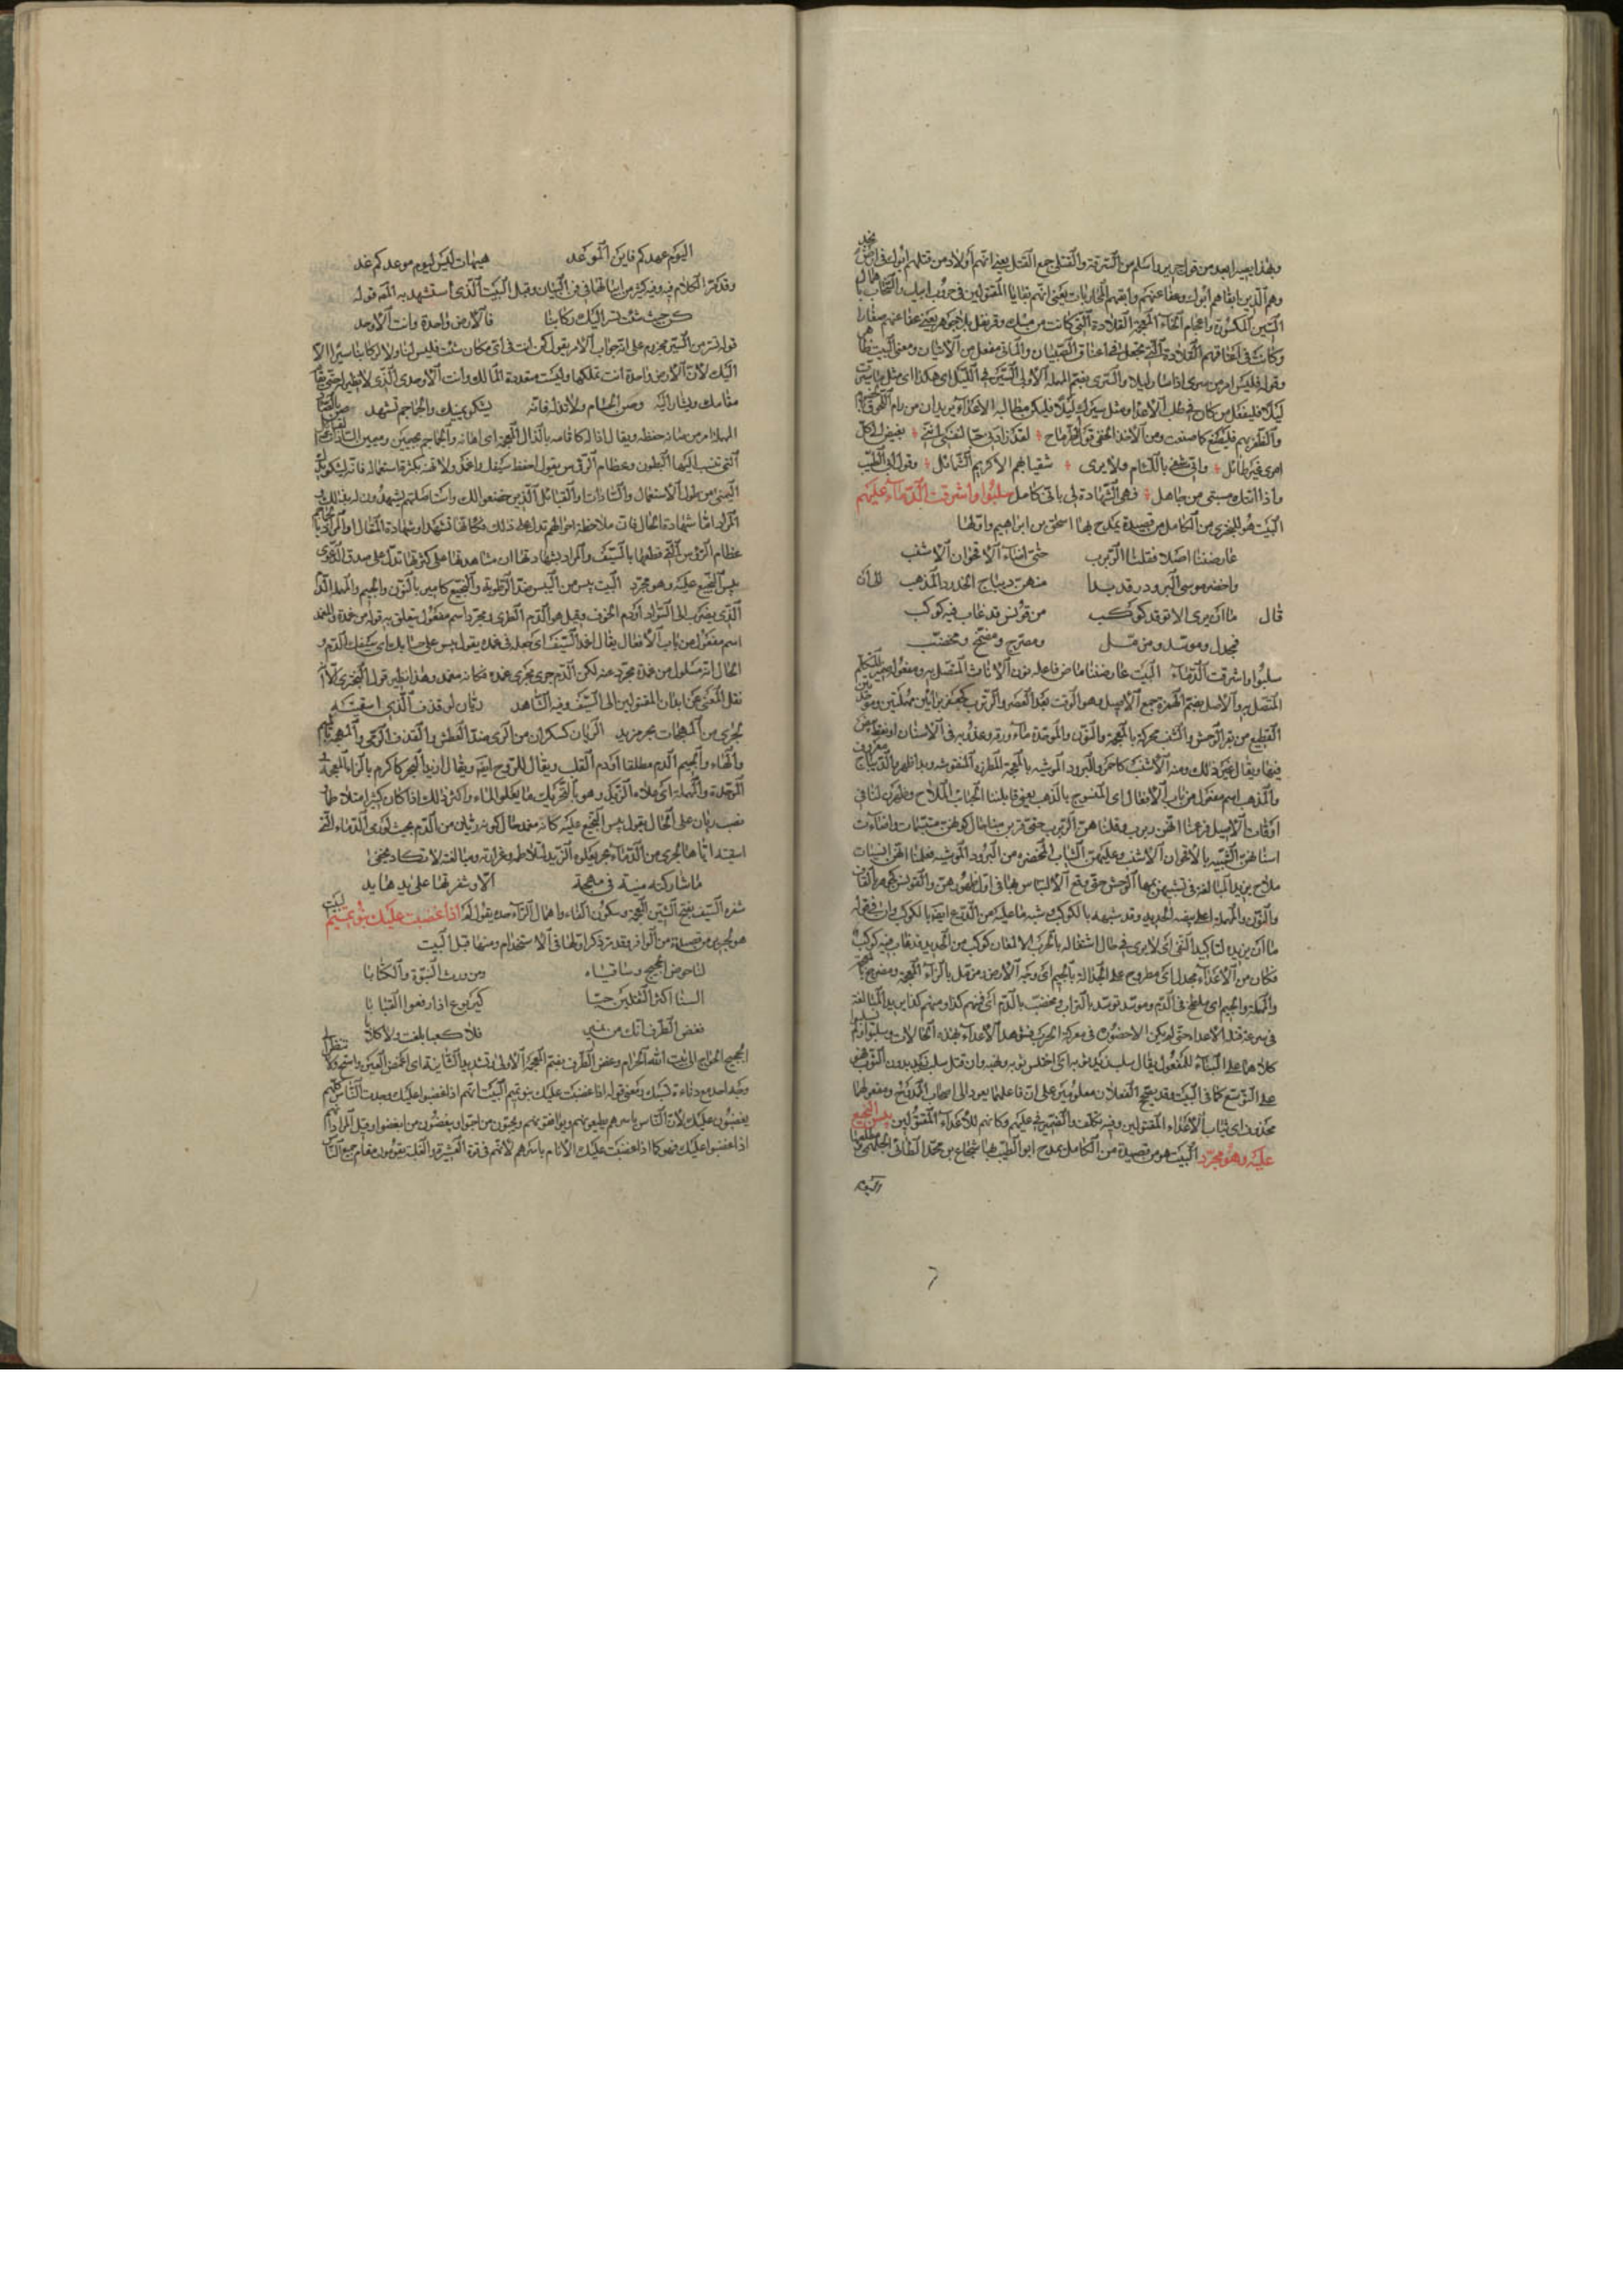 وهذا بعينه ابعد من قول جرير واسلم من السرقة والقتلى جمع القتيل يعني انهم اولاد من قتلهم ابوك في ارض نجد
وهم الذين ابقاهم ابوك وعفا عنهم وابقتهم المحاربات يعني انهم بقايا المقتولين في حروب ابيك والسخاب باهمال
السين المكسورة واعجام الخاء المعجمة القلادة التي كانت من مسك وقرنفل بلا جوهر يعني عفا عنهم صغارا
وكانت في اعناقهم القلادة التي تجعل في اعناق الصبيان
وقوله فليسر امر من سرى اذا سار ليلا والسرى بضم المهملة الاولى السير في الليل اي هكذا اى مثل ما سريت
ليلا فليفعل من كان في طلب الاعداء ومثل سيرك ليلا فليكن مطالبة الاعداء يريد ان من رام
والظفر بهم فليصنع كما صنعت ومن الاخذ الخفي قول الطرماح لقد زادني حبا لنفسي انني بغيض الى كل
امرئ غير طائل واني شقي باللئام ولا يرى شقيا بهم الا كريم الشمائل وقول ابي الطيب
واذا اتتك مذمتي من جاهل فهي الشهادة لي باني كامل سلبوا واشرقت الدماء عليهم
البيت هو للبحتري من الكامل من قصيدة يمدح بها اسحق بن ابراهيم واولها
عارضننا اصلا فقلنا الربرب حتى اضاء الاقحوان الاشنب
واخضر موشى البرود وقد بدا منهن ديباج الخدود المذهب الى ان
قال ما ان يرى الا توقد كوكب من قونس قد غاب فيه كوكب
فمجدل وموسد ومزمل ومضرج ومضمخ ومخضب
سلبوا واشرقت الدماء البيت عارضننا ماض فاعله نون الاناث المتصل به ومفعوله ضمير المتكلم
المتصل به والاصل بضم الهمزة جمع الاصيل وهو الوقت بعد العصر والربرب كجعفر
القطيع من بقر الوحش والشنب محركة بالمعجمة والنون والموحدة ماء ورقة وعذوبة في الاسنان
فيها ويقال غير ذلك ومنه الاشنب كاحمر والبرود الموشية بالمعجمة المطرزة المنقوشة وبدا ظهر والديباج معروف
والمذهب اسم مفعول من باب الافعال اى المنسوج بالذهب يعني قابلتنا الحبائب الملاح وظهرن لنا في
اوقات الاصيل فزعمنا انهن ربرب وقلنا هن الربرب حتى قربن منا حال كونهن مبتسمات واضاءت
اسنانهن الشبيه بالاقحوان الاشنب وعليهن الثياب المخضرة من البرود الموشية فعلمنا انهن انسيات
ملاح يريد المبالغة في تشبيههن بمها الوحش حتى وقع الالتباس هنا في اول ظهورهن والقونس كجوهر بالقاف
والنون والمهملة اعلى بيضة الحديد وقد شبهه بالكوكب وشبه ما عليه من الدرع ايضا بالكوكب وان في قوله
ما ان يزيد لتاكيد النفي اى لا يرى في حال اشتغاله بالحرب الا لمعان كوكب من الحديد قد غاب فيه كوكب
فكان من الاعداء مجدل اى مطروح على الجدالة بالجيم اى وجه الارض ومزمل بالزاء المعجمة ومضرج بالمعجمة
والمهملة والجيم اى ملطخ في الدم وموسد توسد بالتراب ومخضب بالدم اى فمنهم كذا ومنهم كذا يريد المبالغة
في سرعة قتل الاعداء حتى لم يكن الا حضوره في معركة الحرب فشوهد الاعداء بهذه الحالات وسلبوا
كلاهما على البناء للمفعول يقال سلب زيد ثوبه اى اختلس ثوبه ونهبه وان قتل سلب زيد بدون الثوب فهو
على التوسع كما في البيت وقد يصح الفعلان معلومين على ان فاعلهما يعود الى اصحاب الممدوح ومفعولهما
محذوف اى ثياب الاعداء المقتولين وفيه تكلف والضمير في عليهم وكانهم للاعداء المقتولين يبس النجيع
عليه وهو مجرد البيت هو من قصيدة من الكامل يمدح ابو الطيب بها شجاع بن محمد الطائي المنبجي مطلعها
اليوم
اليوم عهدكم فاين الموعد هيهات ليس ليوم موعدكم غد
وقد مر الكلام فيه وفي كثير من ابياتها في فن البيان وقبل البيت الذي استشهد به المص قوله
كن حيث شئت تسر اليك ركابنا فالارض واحدة وانت الاوحد
قوله تسر من السير مجزوم على انه جواب الامر يقول كن انت في اي مكان شئت فليس لنا ولا لركابنا سير الا
اليك لان الارض واحدة انت تملكها وليست متعددة المالك وانت الاوحدي الذي لا نظير له حتى يقام
مقامك ويشار اليه وصن الحسام ولا تذله فانه يشكو يمينك والجماجم تشهد صن بالصاد
المهملة امر من صانه حفظه ويقال اذاله كاقامه بالذال المعجمة اى اهانه والجماجم بجيمين وميمين السادات والقبائل
التي تنسب اليها البطون وعظام الراس يقول احفظ سيفك واغمده ولا تهنه بكثرة استعماله فانه يشكو يدك
اليمنى من طول الاستعمال والسادات والقبائل الذين خضعوا لك واستاصلتهم يشهدون له بذلك
المراد اما شهادة الحال فان ملاحظة احوالهم تدل على ذلك فكانها تشهد او شهادة المقال او المراد بالجماجم
عظام الرؤس التي قطعها بالسيف والمراد بشهادتها ان مشاهدتها على كثرتها تدل على صدق الدعوى
يبس النجيع عليه وهو مجرد البيت يبس من اليبس ضد الرطوبة والنجيع كامير بالنون والجيم والمهملة الدم
الذي يضرب الى السواد او دم الجوف وقيل هو الدم الطري ومجرد اسم مفعول يتعلق به قوله من غمده والمغمد
اسم مفعول من باب الافعال يقال اغمد السيف اى جعله في غمده يقول يبس على حسامك اى سيفك الدم و
الحال انه مسلول من غمده مجرد عنه لكن الدم جرى مجرى غمده فكانه مغمد وهذا نظير قول البحتري الا ان
نقل المعنى عن ابدان المقتولين الى السيف وفيه الشاهد ريان لو قذف الذي اسقيته
لجرى من المهجات بحر مزبد الريان كسكران من الرى ضد العطش والقذف الرمي والمهجة بالميم
والهاء والجيم الدم مطلقا او دم القلب ويقال للروح ايضا ويقال ازبد البحر كاكرم بالزاء المعجمة و
الموحدة والمهملة اى علاه الزبد وهو بالتحريك ما يعلو الماء واكثر ذلك اذا كان كثير امتلاء ماء
نصب ريان على الحال يقول يبس النجيع عليه كانه مغمد حال كونه ريان من الدم بحيث لو رمى الدماء التي
اسقيته اياها لجرى من الدماء بحر يعلوه الزبد لتلاطمه وغزارته ومبالغة لا تكاد تخفى
ما شاركته منية في مهجة الا وشفرتها على يدها يد
شفرة السيف بفتح الشين المعجمة وسكون الفاء واهمال الراء حده يقول لم اذا غضبت عليك بنو تميم البيت
هو لجرير من قصيدة من الوافر وقد مر ذكر اولها في الاستخدام ومنها قبل البيت
لنا حوض الحجيج وساقياه ومن ورث النبوة والكتابا
السنا اكثر الثقلين حيا
فغض الطرف انك من نمير فلا كعبا بلغت ولا كلابا
الحجيج الحجاج الى بيت الله الحرام وغض الطرف بضم المعجمة الاولى وتشديد الثانية اى اغمض العين واستح ولا تنظر الى
وجه احد مع دناءة نسبك ومعنى قوله اذا غضبت عليك بنو تميم البيت انهم اذا غضبوا عليك وجدت الناس كلهم
يغضبون عليك لان الناس باسرهم يطيعونهم ويوافقونهم ويحبون من احبوا ويبغضون من ابغضوا وقيل المراد
اذا غضبوا عليك فهو كما اذا غضبت عليك الانام باسرهم لانهم في قوة العشيرة والغلبة يقومون مقام جميع الناس